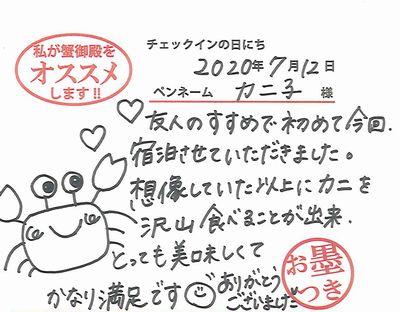 私が蟹御殿を
オススメ
します!!
チェックインの日にち
2020年7月12日
ペンネーム カニ子 様
友人のすすめで初めて今回.
宿泊させていただきました。
想像していた以上にカニを
沢山食べることが出来.
とっても美味しくて
かなり満足です ありがとう
ございました
お墨
つき